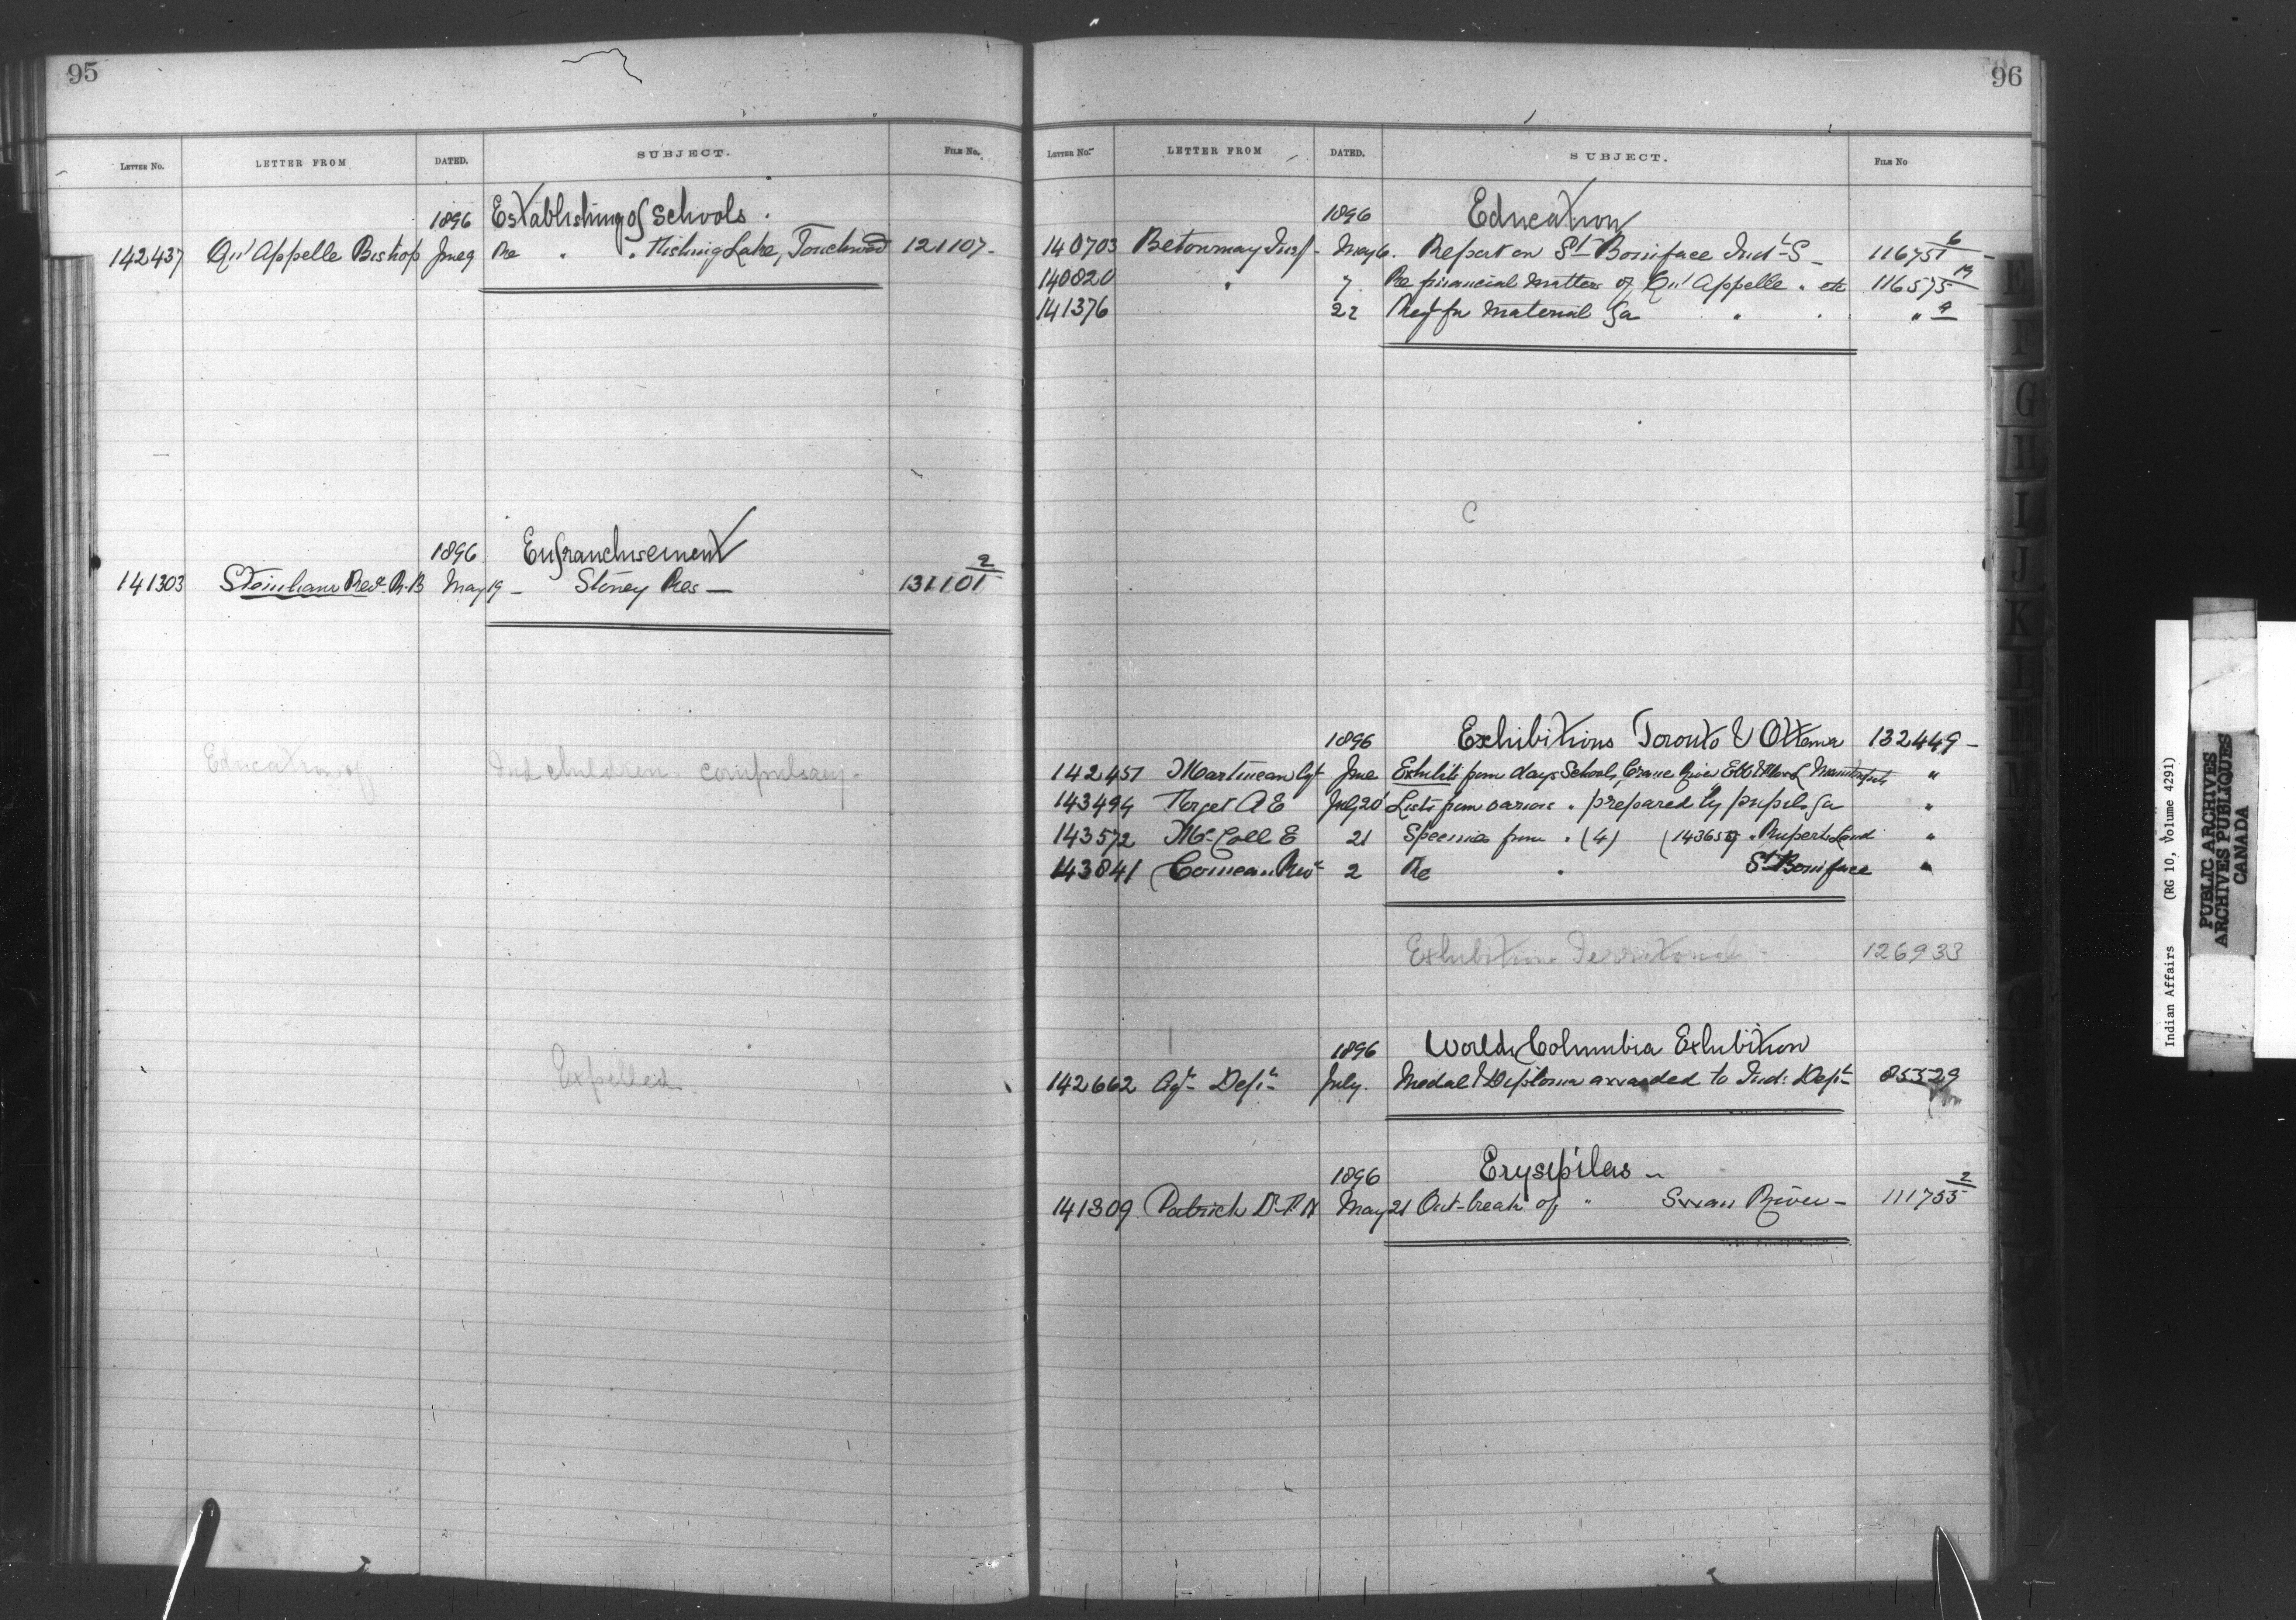 95
LETTER NO. LETTER FROM DATED. SUBJECT. FILE NO.
1896 Establishing of Schools.
142437 Qu'Appelle Bishop June 9 Re " " Fishing Lake, Touchwood 121107-
1896 Enfranchisement
141303 Steinhaur Revd. R.B May 19 - Stoney Res - 131101 2
Education of Ind children - compulsory -
Expelled
96
LETTER NO. LETTER FROM DATED. SUBJECT. FILE NO
1896 Education
140703 Betournay Insp - May 6. Report on St Boniface Indl S - 116751 6
140820 " 7. Re financial Matters of Qu'Appelle " etc 116575 19
141376 22 Material " " " 9
1896 Exhibitions Toronto & Ottawa 132449 -
142451 Martineau Agt June Exhibits from days Schools, Crane River "
143494 Forget A E July 20 Lists from various " prepared by pupils "
143572 McColl E 21 Specimens from " (4) " Ruperts Land "
143841 Comeau Revd 2 Re " St Boniface "
Exhibition Territorial - 126933
1896 Worlds Columbia Exhibition
142662 Agr Dept July. Medal & Diploma awarded to Ind: Dept 85529
1896 Erysipilas -
141309 Patrick Dr. T. A May 21 Out-break of " Swan River - 111755 2
E
F
G
H
I
J
K
Indian Affairs (RG 10, Volume 4291)
PUBLIC ARCHIVES
ARCHIVES PUBLIQUES
CANADA